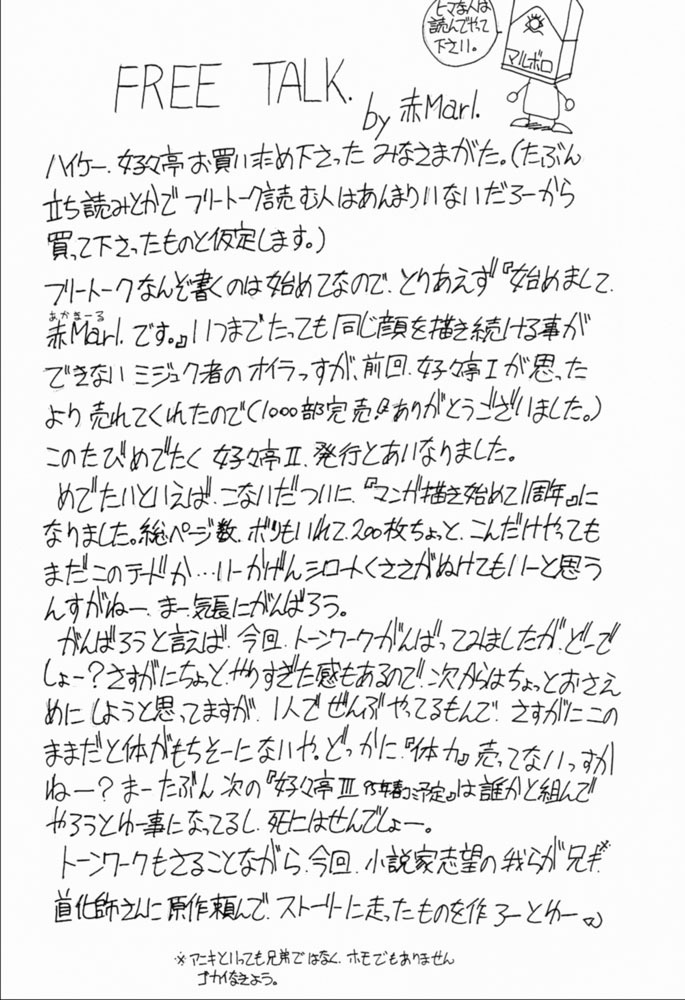 ヒマな人は
読んでやって
下さい。
マルボロ
FREE TALK.
by 赤Marl.
ハイケー、好々亭お買い求め下さったみなさまがた。(たぶん
立ち読みとかでフリートーク読む人はあんまりいないだろーから
買って下さったものと仮定します。)
フリートークなんぞ書くのは始めてなので、とりあえず『始めまして、
あかまーる
赤Marl.です。』いつまでたっても同じ顔を描き続ける事が
できないミジュク者のオイラっすが、前回、好々亭Iが思った
より売れてくれたので(1000部完売!!ありがとうございました。)
このたびめでたく好々亭II、発行とあいなりました。
めでたいといえば、こないだついに、『マンガ描き始めて1周年』に
なりました。総ページ数、ボツもいれて、200枚ちょっと、こんだけやっても
まだこのテードか…いーかげんシロートくささがぬけてもいーと思う
んすがねー、まー気長にがんばろう。
がんばろうと言えば、今回、トーンワークがんばってみましたが、どーで
しょー?さすがにちょっと、やりすぎた感もあるので、次からはちょっとおさえ
めにしようと思ってますが、1人でぜんぶやってるもんで、さすがにこの
ままだと体がもちそーにないや。どっかに、『体力』売ってないっすか
ねー?まーたぶん次の『好々亭III 95年春コミ予定』は誰かと組んで
やろうとゆー事になってるし、死にはせんでしょー。
トーンワークもさることながら、今回、小説家志望の我らが兄キ※
道化師さんに原作頼んで、ストーリーに走ったものを作ろーとゆー
※アニキといっても兄弟ではなく、ホモでもありません
ゴカイなきよう。